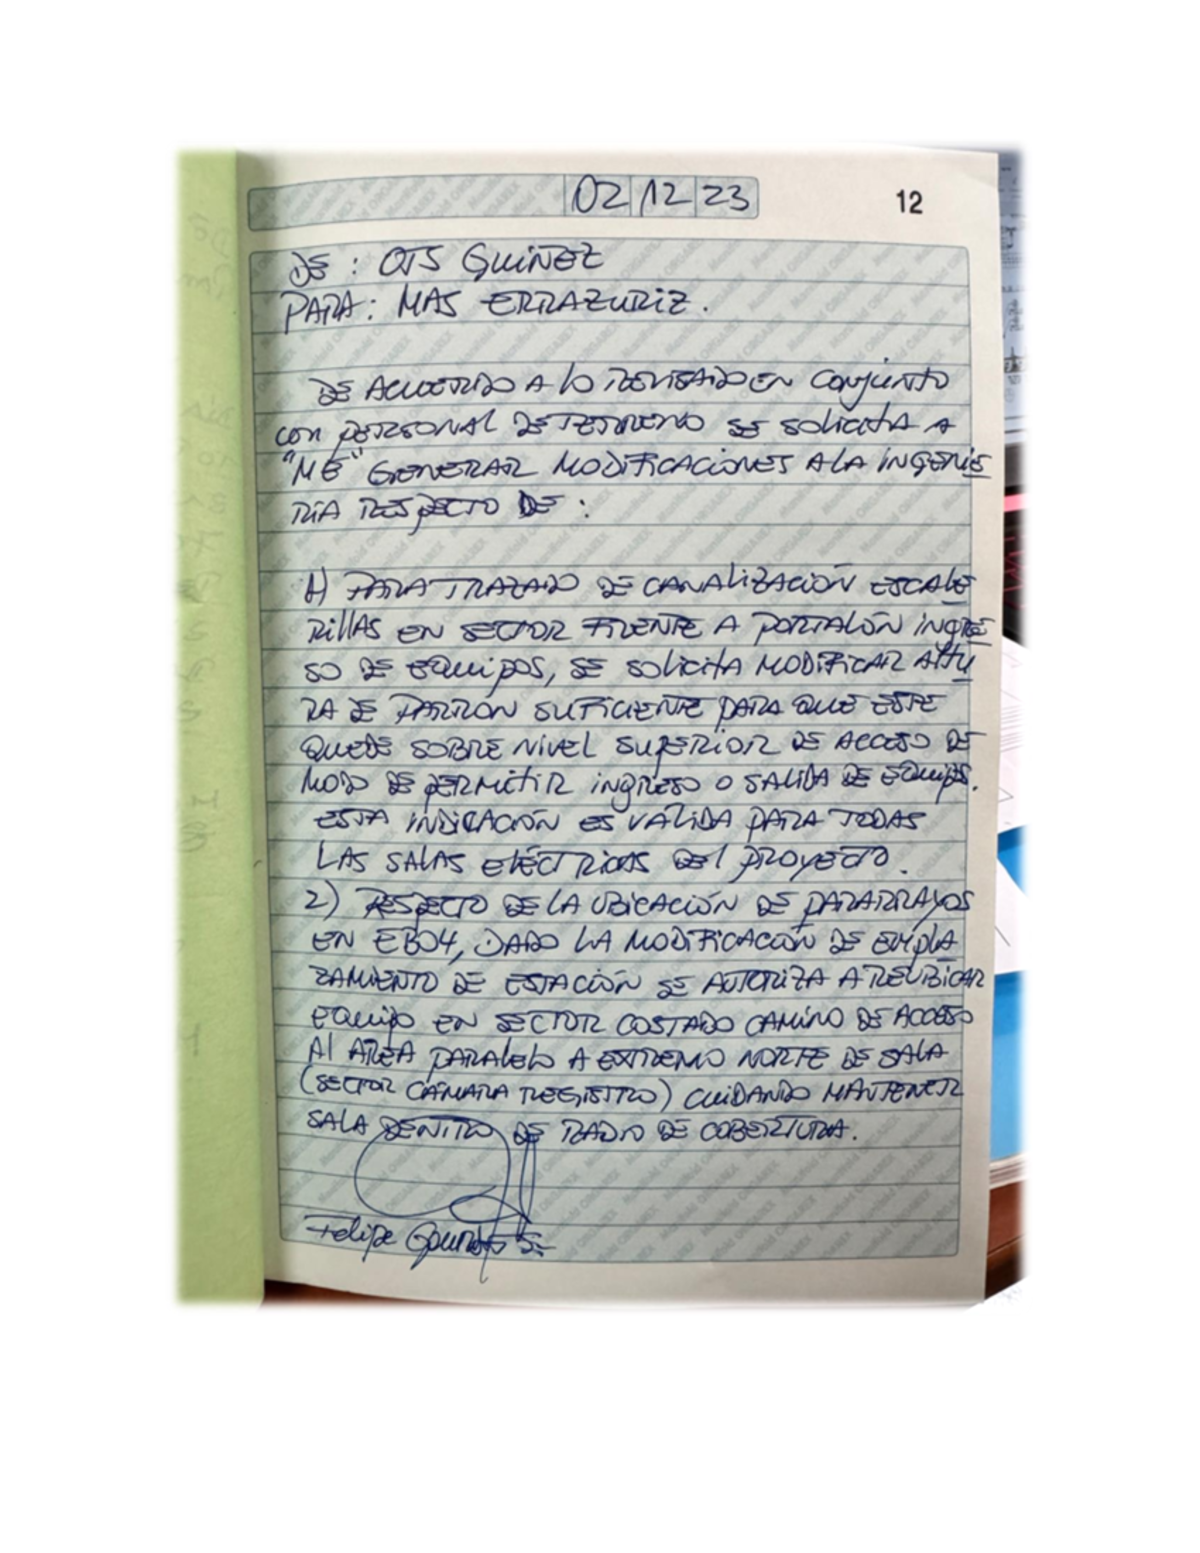 02 12 23
12
DE : OTS GUIÑEZ
PARA: MAS ERRAZURIZ.
DE ACUERDO A lo REVISADO EN CONJUNTO
CON PERSONAL DE TERRENO SE SOLICITA A
"ME" GENERAR MODIFICACIONES A LA INGENIE
RIA RESPECTO DE :
1) PARA TRAZADO DE CANALIZACIÓN ESCALE
RILLAS EN SECTOR FRENTE A PORTALÓN INGRE
SO DE EQUIPOS, SE SOLICITA MODIFICAR ALTU
RA DE PARRON SUFICIENTE PARA QUE ESTE
QUEDE SOBRE NIVEL SUPERIOR DE ACCESO DE
MODO DE PERMITIR INGRESO O SALIDA DE EQUIPOS.
ESTA INDICACIÓN ES VÁLIDA PARA TODAS
LAS SALAS ELÉCTRICAS DEL PROYECTO.
2) RESPECTO DE LA UBICACIÓN DE PARARRAYOS
EN EB04, DADO LA MODIFICACIÓN DE EMPLA
ZAMIENTO DE ESTACIÓN SE AUTORIZA A REUBICAR
EQUIPO EN SECTOR COSTADO CAMINO DE ACCESO
AL AREA PARALELO A EXTREMO NORTE DE SALA
(SECTOR CÁMARA REGISTRO) CUIDANDO MANTENER
SALA DENTRO DE RADIO DE COBERTURA.
Felipe